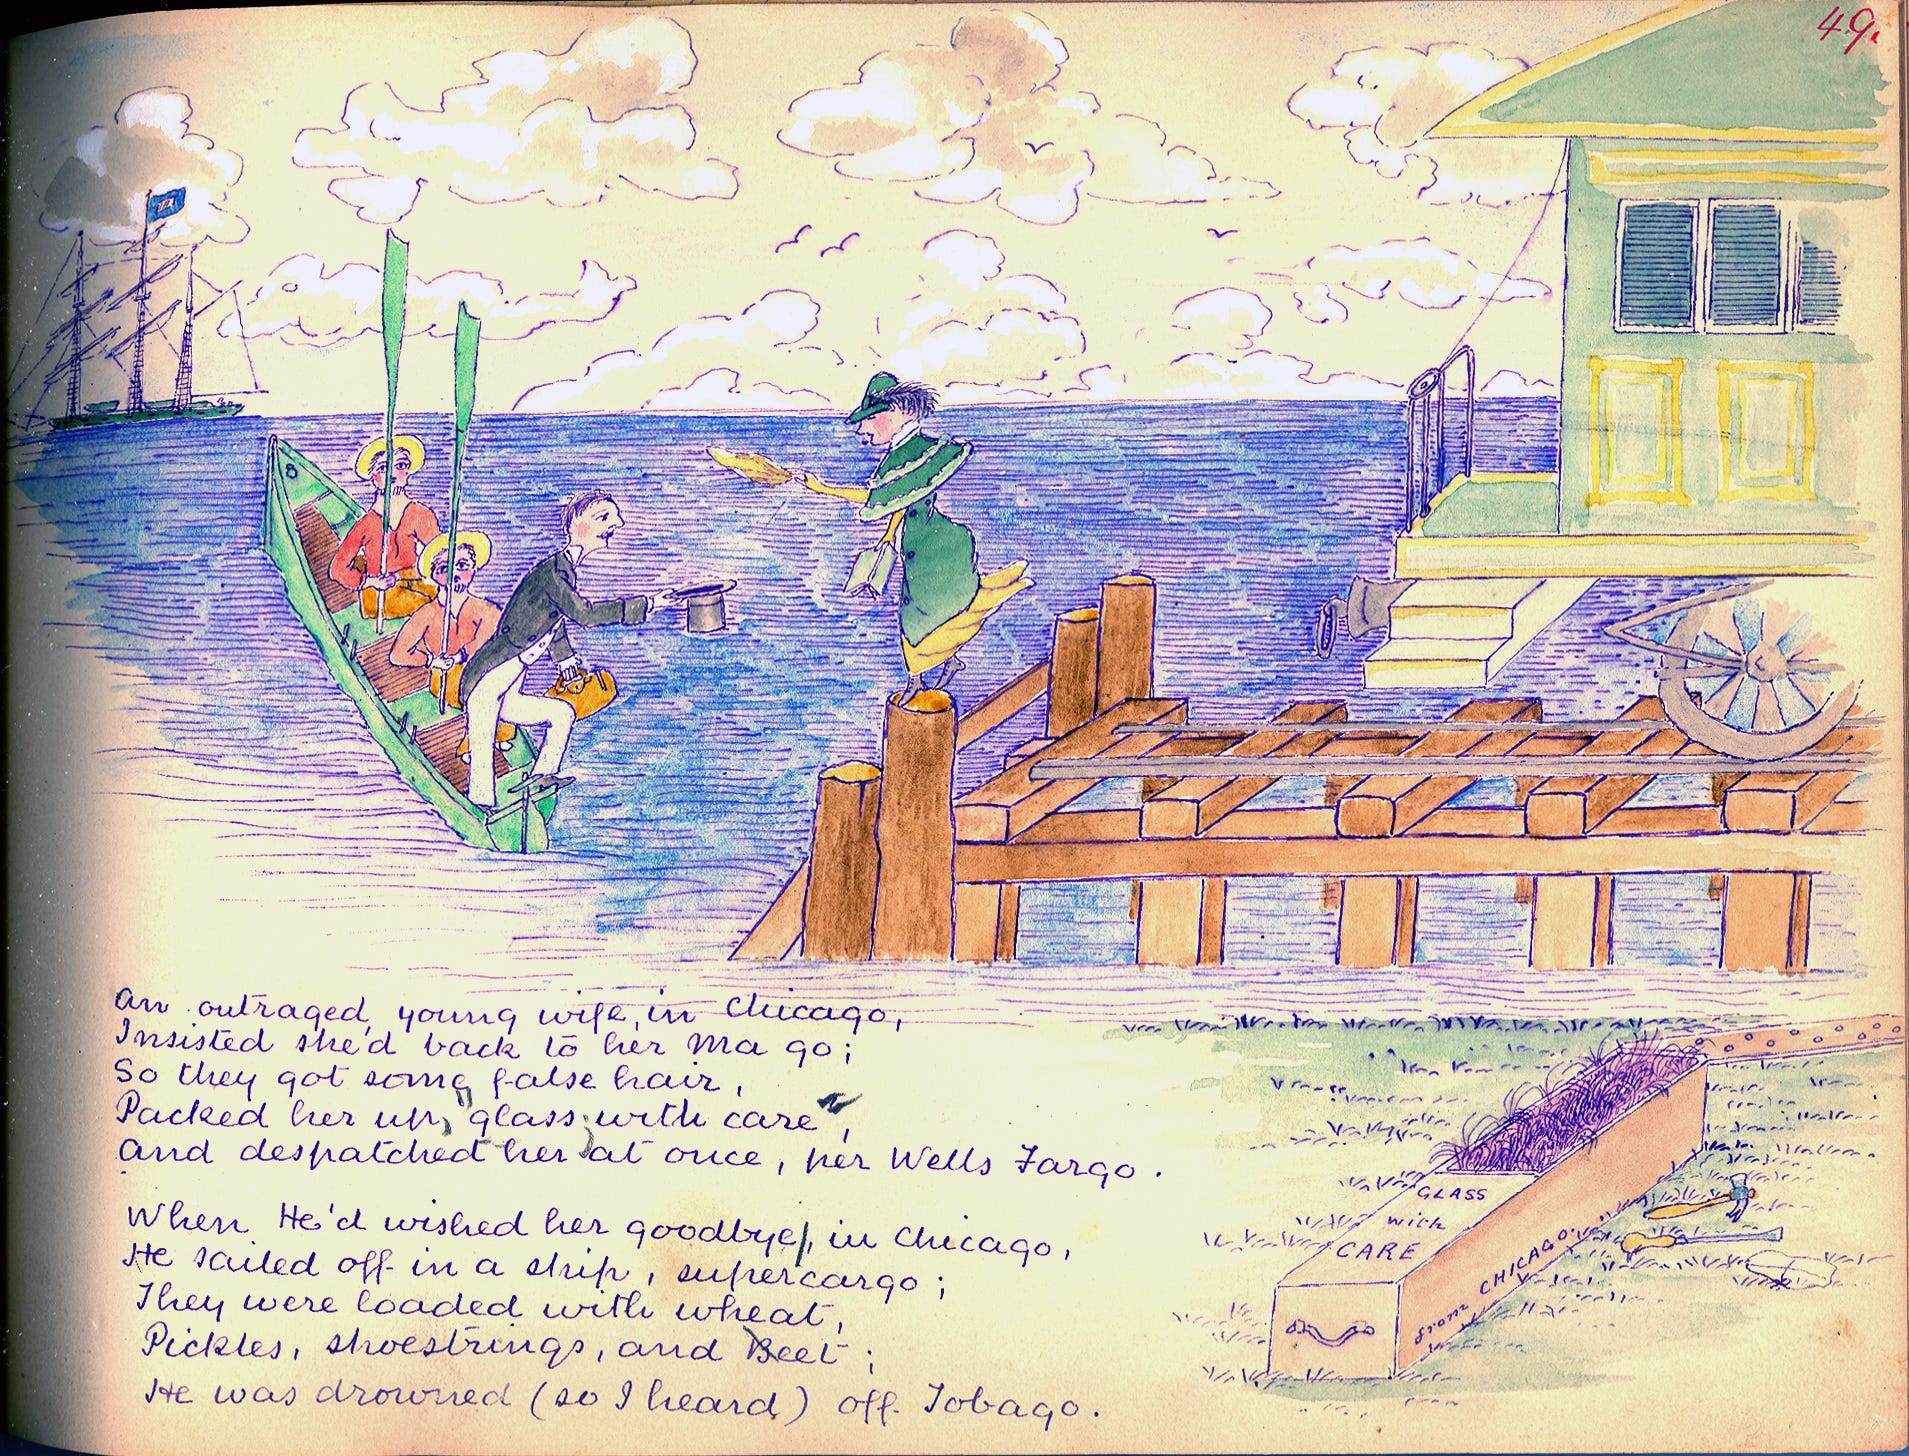 49.
8
An outraged, young wife, in Chicago,
Insisted she'd back to her Ma go;
So they got some false hair,
Packed her up, "glass with care",
And despatched her at once, per Wells Fargo.
When He'd wished her goodbye, in Chicago,
He sailed off in a ship, supercargo;
They were loaded with wheat,
Pickles, shoestrings, and Beet;
He was drowned (so I heard) off Tobago.
GLASS
with
CARE
from CHICAGO.